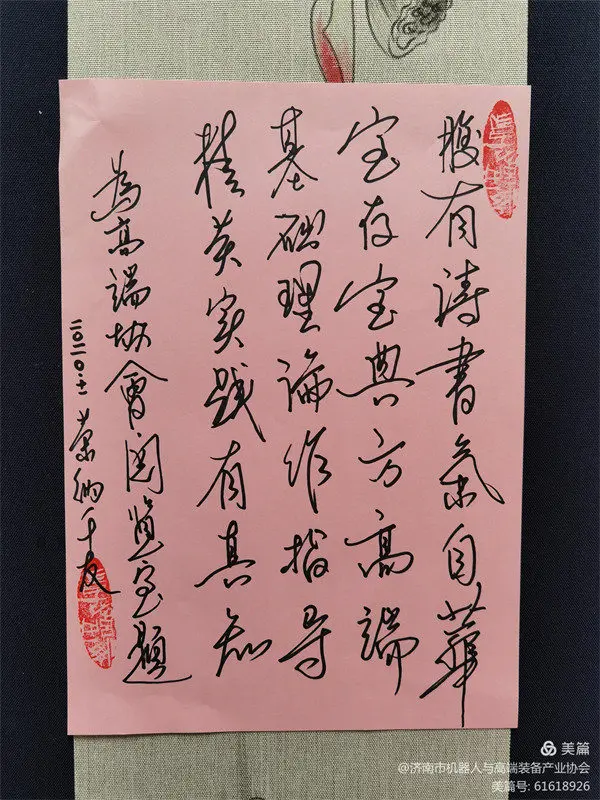 腹有詩書氣自華
室存宝典方高端
基础理論作指导
英实践有真知
為高端协會图览室題
千友
美篇
@济南市机器人与高端装备产业协会
美篇号: 61618926